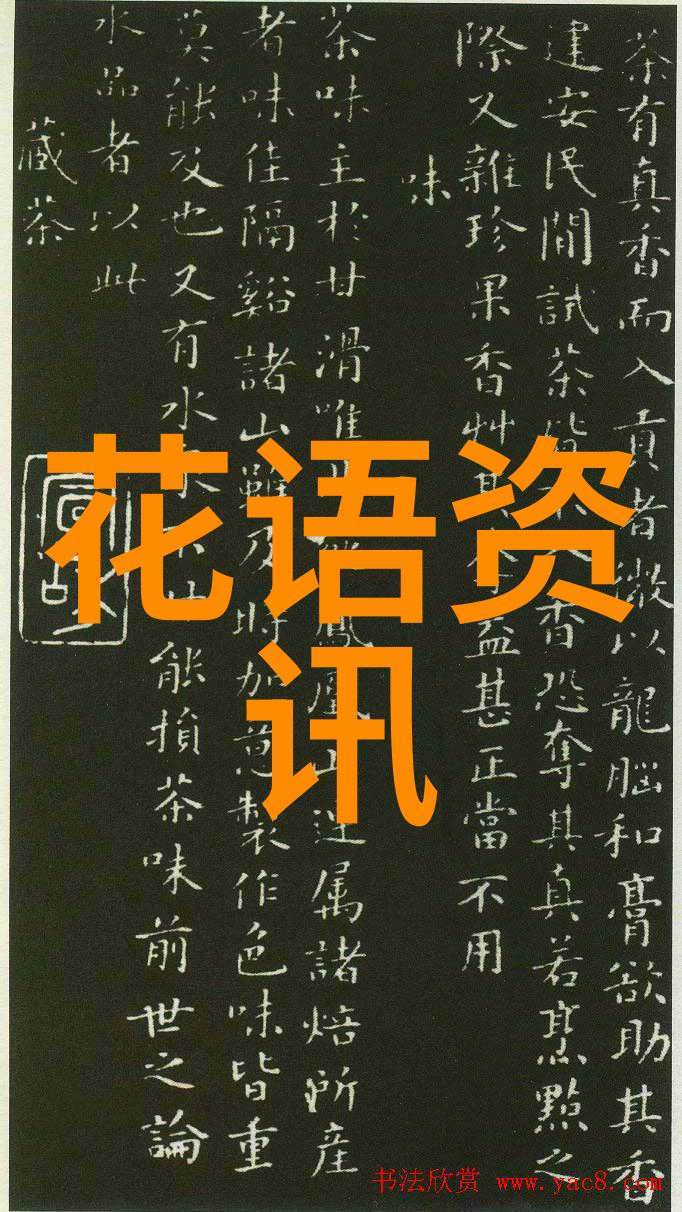 茶有真香而入貢者微以龍腦和膏欲助其香
建安民間試茶香恐奪其真若烹點之
際又雜珍果香艸其益甚正當不用
味
茶味主於甘滑唯鳳凰山連属諸焙所産
者味佳隔谿諸山雖及時加意製作色味皆重
莫能及也又有水能損茶味前世之論
水品者以此
藏茶
花语资
讯
书法欣赏 www.yac8.com